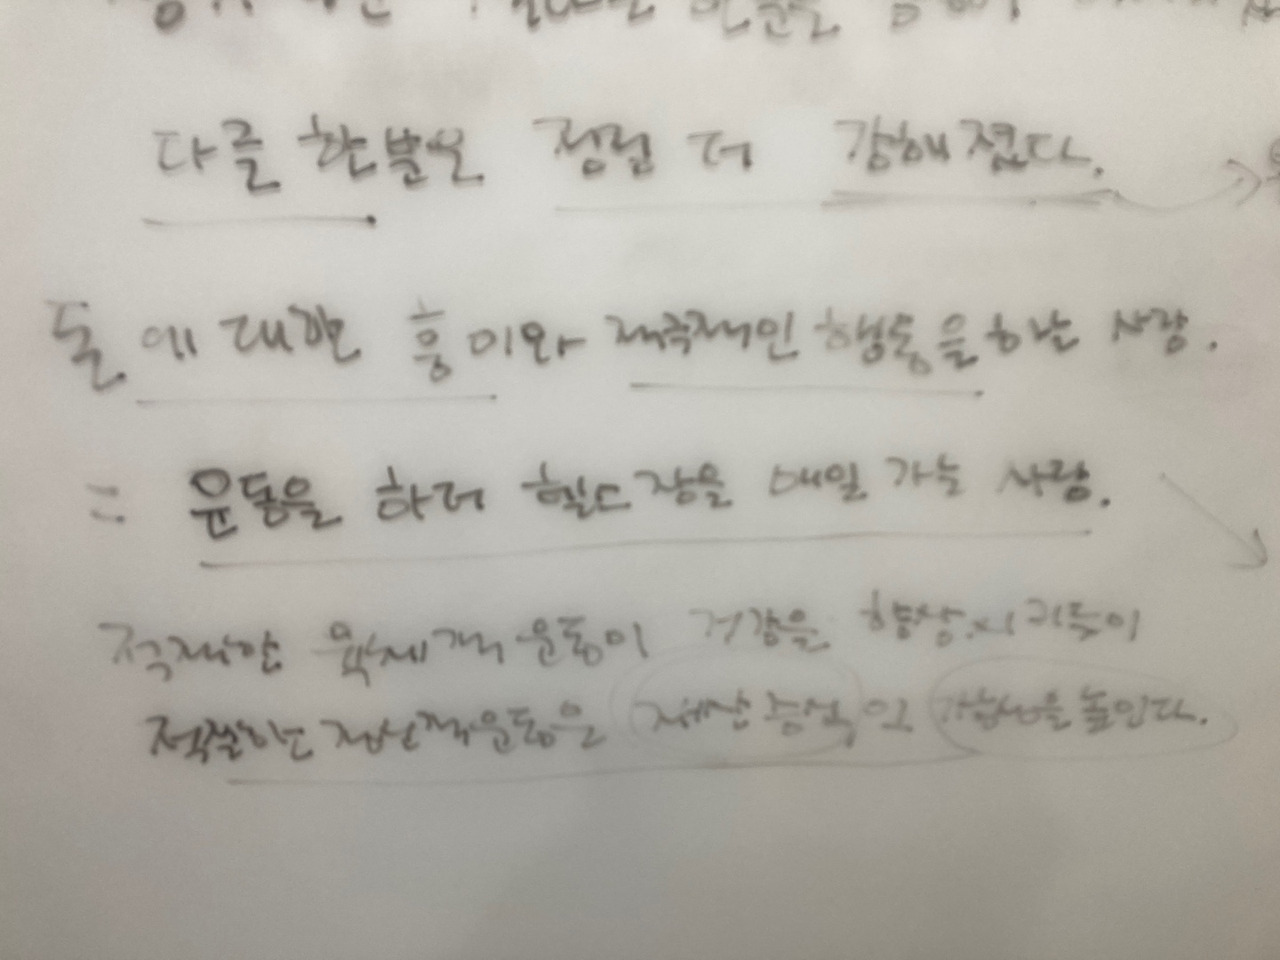 다른 한분은 점점 더 강해졌다.
돈에 대한 흥미와 적극적인 행동을 하는 사람.
= 운동을 하러 헬스장을 매일 가는 사람.
육체적 운동이 건강을 향상시키듯이
정신적 운동은 재산 증식의 가능성을 높인다.